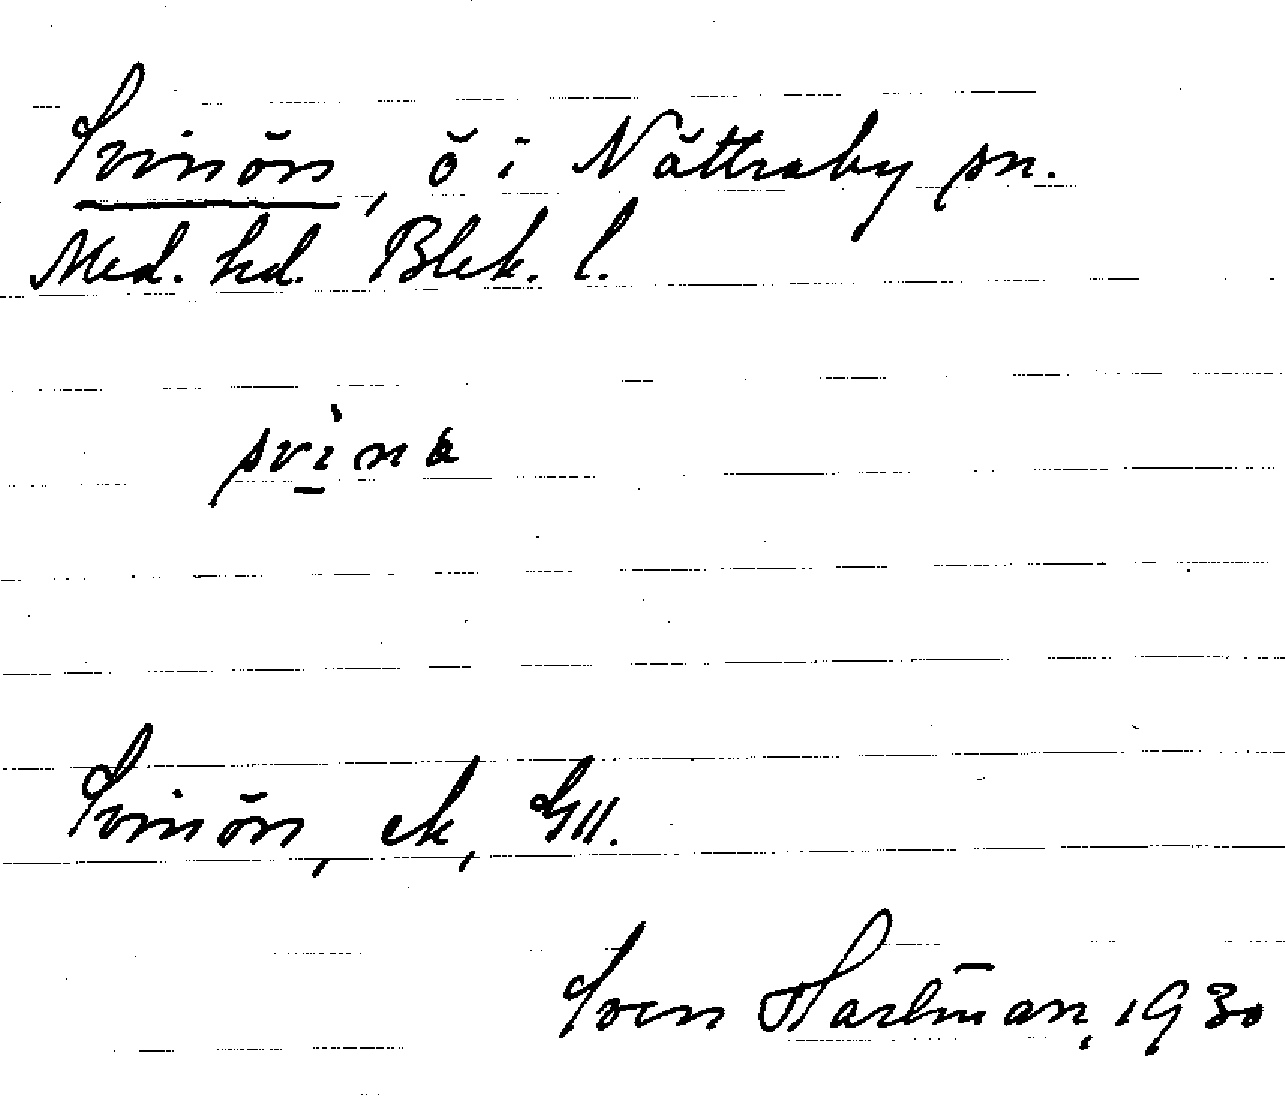 Svinön, ö i Nättraby sn.
Med. hd. Blek. l.
svina
Svinön, ek, GII.
Sven Hartman, 1930